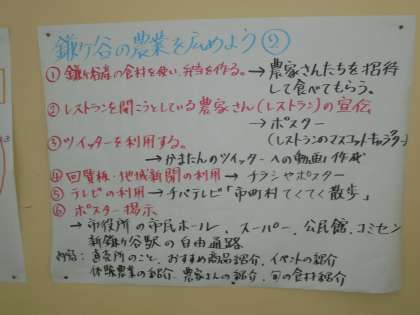 鎌ケ谷の農業を広めよう②
① 鎌ケ谷産の食材を使い、弁当を作る。→農家さんたちを招待
して食べてもらう。
②レストランを開こうとしている農家さん(レストラン)の宣伝
→ポスター
(レストランのマスコットキャラクター)
③ツイッターを利用する。
→かまたんのツイッターへの動画作成
④回覧板・地域新聞の利用→チラシやポスター
⑤テレビの利用→チバテレビ「市町村てくてく散歩」
⑥ポスター掲示
→市役所の市民ホール、スーパー、公民館、コミセン
新鎌ヶ谷駅の自由通路
内容：直売所のこと、おすすめ商品紹介、イベントの紹介
体験農業の紹介、農家さんの紹介、旬の食材紹介